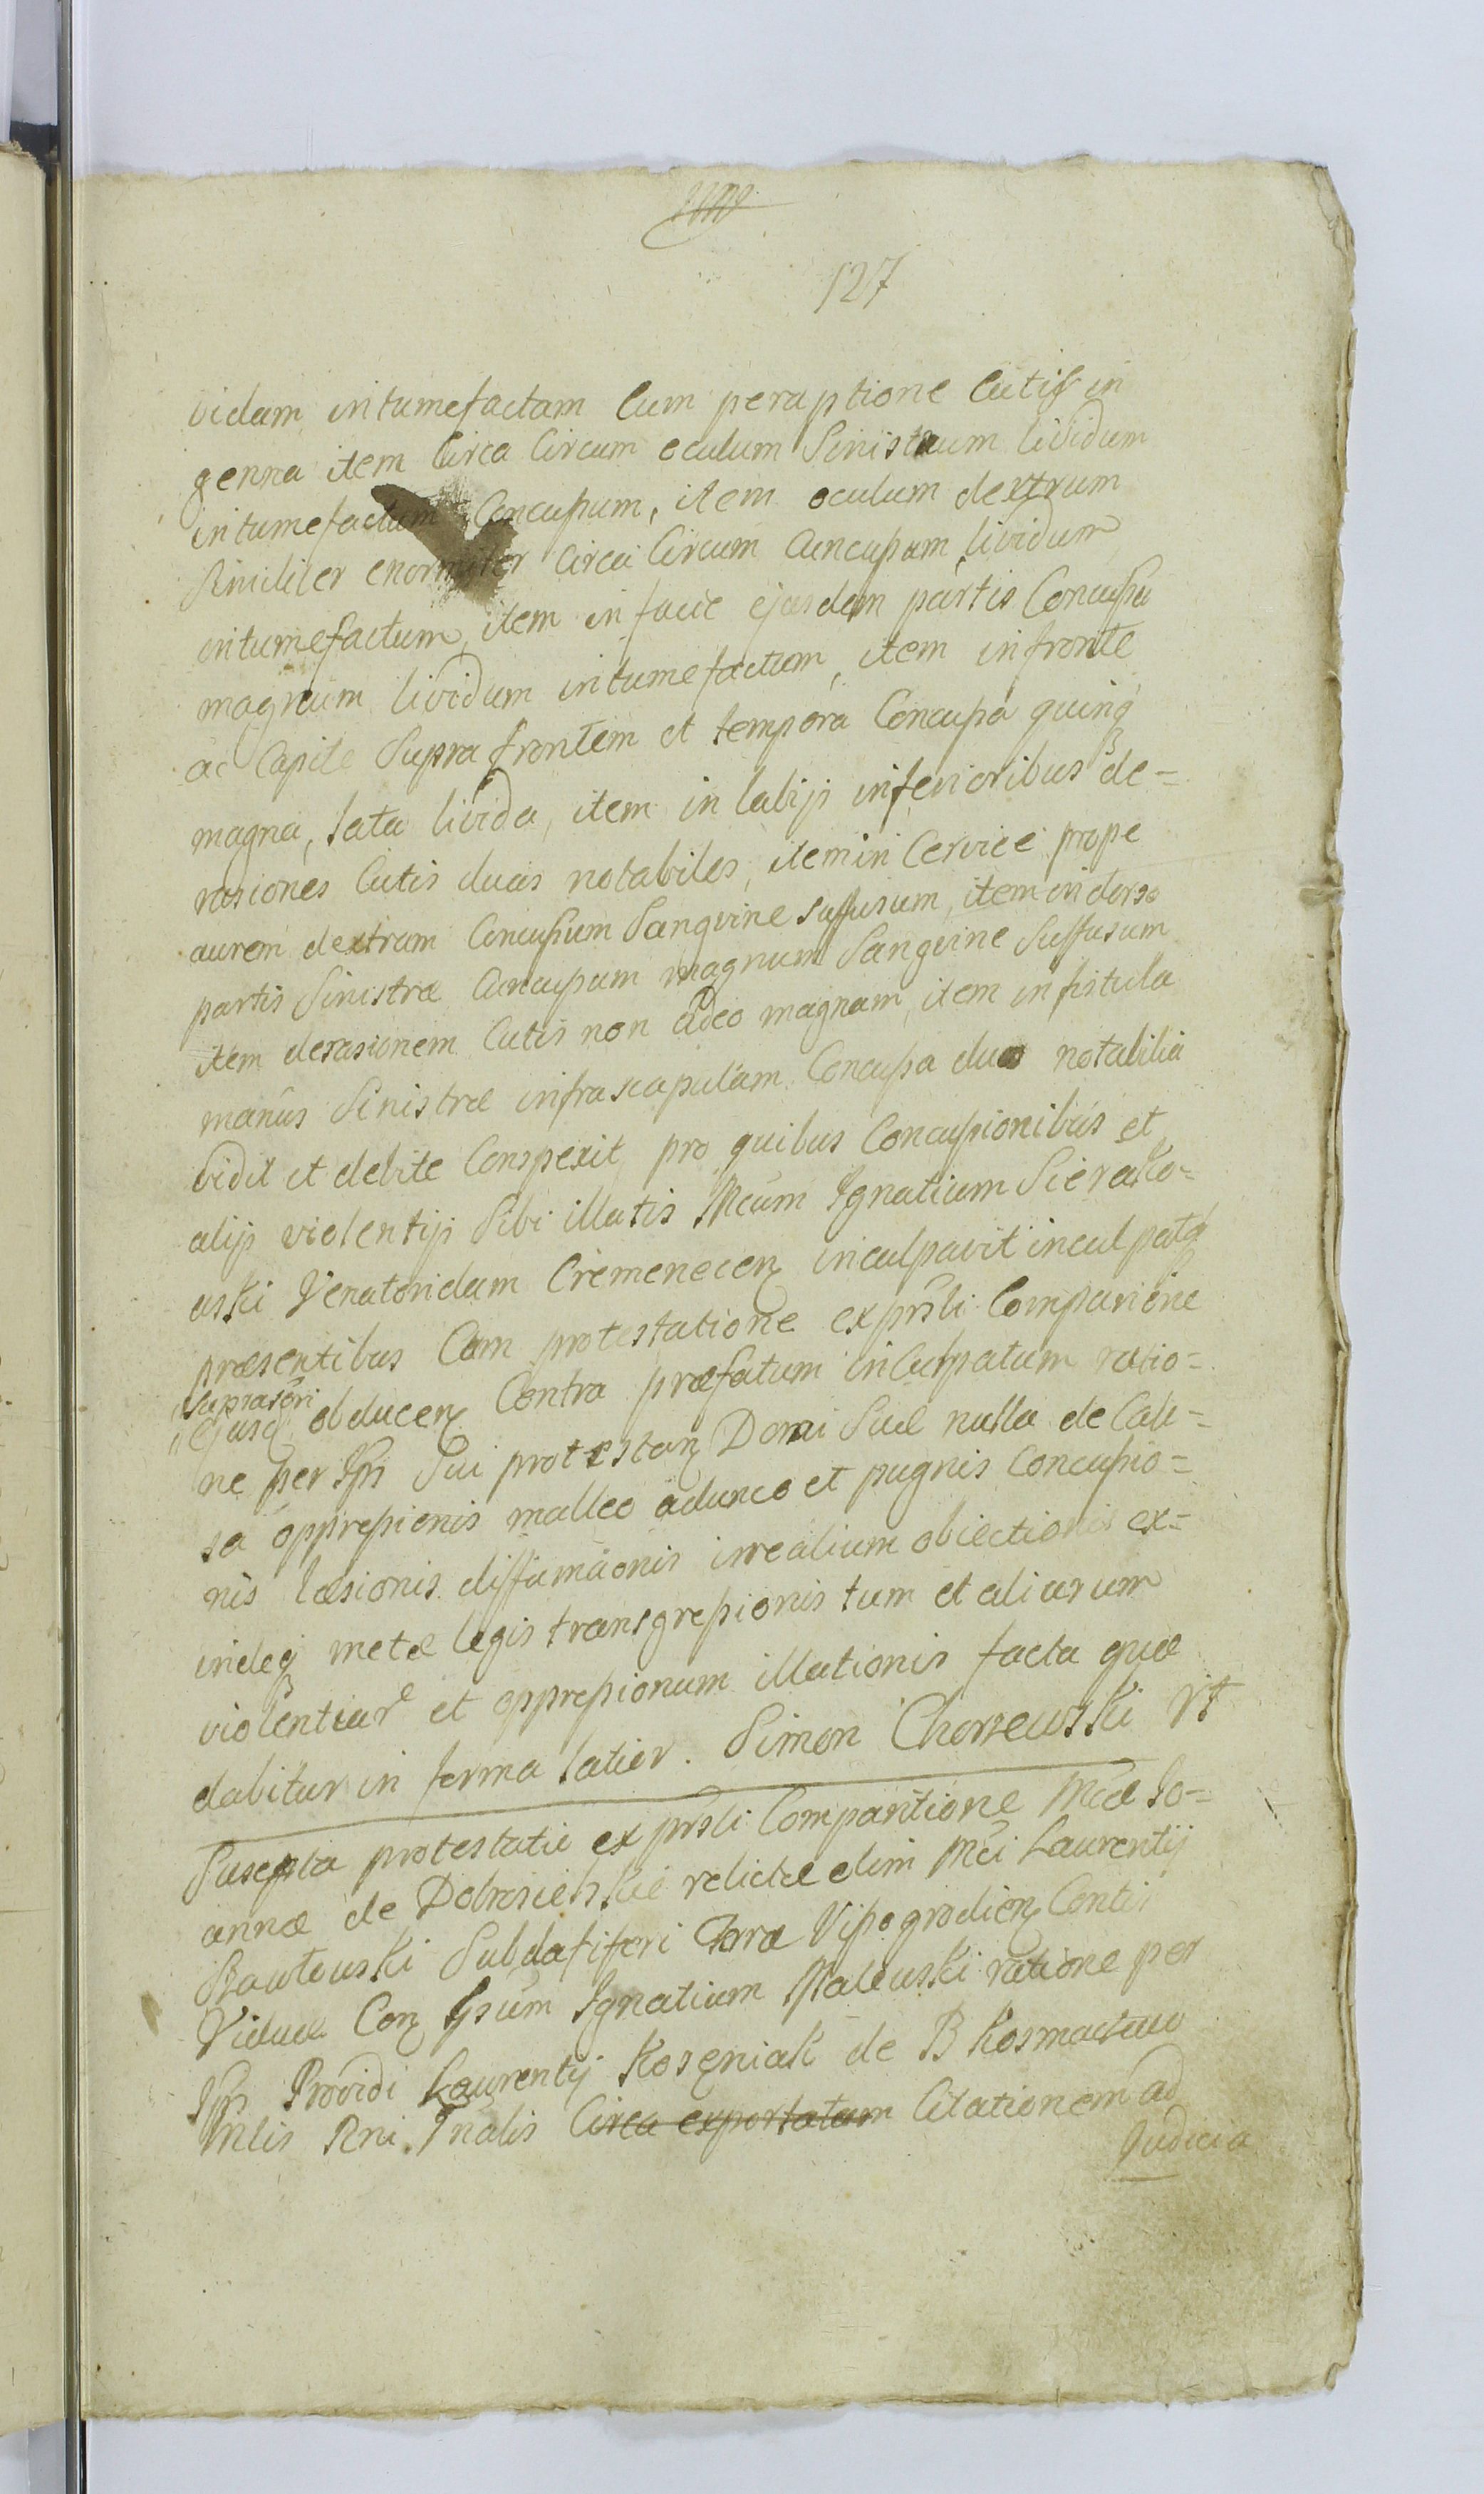 127
vidam intumefactam Cum peraptione Cutis in
genna item Circa Circum oculum Sinistrum lividum
intumefactum Concussum, item oculum dextrum
Similiter enormiter Circa Circum Concussum lividum
intumefactum, item in facie ejusdem partis Concussu
magnum lividum intumefactum, item in fronte
ac Capite Supra frontem et tempora Concussa quinq
magna, lata livida, item in labijs inferioribus de=
rasiones Cutis duas notabiles, item in Cervice prope
aurem dextram Concussum Sanguine suffusum, item in dorso
partis Sinistræ Concussum magnum Sanguine Suffusum
item derasionem Cutis non adeo magnam, item in fistula
manus Sinistræ infra scapulam Concussa duo notabilia
vidit et debite Conspexit, pro quibus Concussionibus et
alijs violentijs Sibi illatis Mcum Ignatium Sierako=
uski Venatoridam Cremenecen inculpavit inculpatq
præsentibus Cum protestatione ex prsli Comparitione
suprascri
ejusq obducen Contra præfatum inculpatum ratio=
ne per Ipsi Sui protestan Domi Suæ nulla de Cau=
sa oppressionis malleo adunco et pugnis Concussio=
nis læsionis diffamãonis irrealium obiectionis ex=
indeq metæ legis transgressionis tum et aliarum
violentiar et oppressionum illationis facta quæ
dabitur in forma latior. Simon Chorzewski Vt
Suscepta protestatio ex prsli Comparitione Mcæ Jo=
annæ de Dobrosielskie relictæ olim Mci Laurentij
Subdafiferi Terræ Visogrodien Contis
Viduæ Con Gsum Ignatium Malewski ratione per
Ipsi Providi Laurentij Kozeniak de B Kosmactwo
Mlis Rni Tnalis Circa exportatam Citationem ad
Judicia